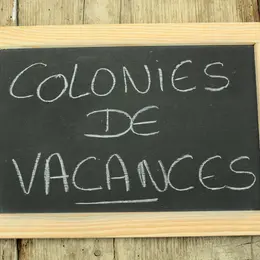 COLONIES
DE
VACANCES